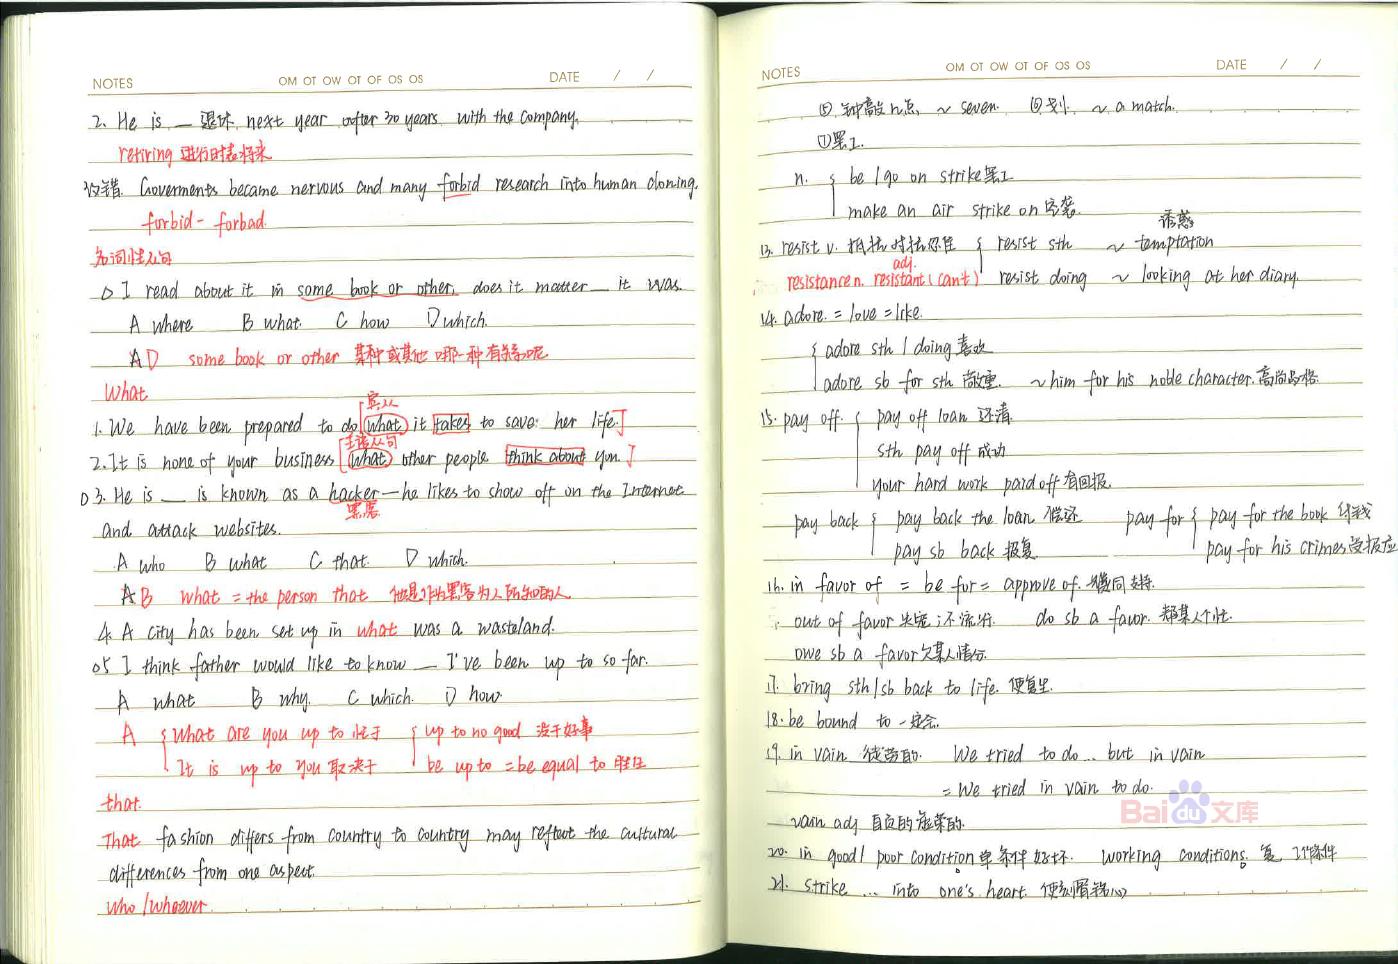 NOTES OM OT OW OT OF OS OS DATE / /
2. He is __ 退休 next year after 30 years with the company.
retiring 进行时表将来
改错. Goverments became nervous and many forbid research into human cloning.
forbid - forbad.
名词性从句
I read about it in some book or other, does it matter __ it was.
A where B what. C how D which.
A D some book or other 某种或其他 哪一种有关系呢
What
宾从
1. We have been prepared to do [what it takes to save her life.]
主语从句
2. It is none of your business [what other people think about you.]
3. He is __ is known as a hacker—he likes to show off on the Internet
黑客
and attack websites.
A who B what C that. D which.
A B what = the person that 他是作为黑客为人所知的人
4. A city has been set up in what was a wasteland.
5 I think father would like to know __ I've been up to so far.
A what B why. C which. D how.
A { what are you up to 忙于 { up to no good 没干好事
It is up to you 取决于 be up to = be equal to 胜任
that.
That fashion differs from country to country may reflect the cultural
differences from one aspect.
who / whoever
NOTES OM OT OW OT OF OS OS DATE / /
⑤ 钟敲n点 ~ seven. ⑥ 划 ~ a match.
①罢工.
n. { be / go on strike 罢工
make an air strike on 空袭.
诱惑
13. resist v. 抵抗 对抗 忍住 { resist sth ~ temptation
adj.
resistance n. resistant (can't) resist doing ~ looking at her diary.
14. adore. = love = like.
{ adore sth / doing 喜欢
adore sb for sth 敬重. ~ him for his noble character. 高尚品格.
15. pay off. { pay off loan 还清
sth pay off 成功
your hard work paid off 有回报.
pay back { pay back the loan 偿还 pay for { pay for the book 付钱
pay sb back 报复 pay for his crimes 受报应
16. in favor of = be for = approve of. 赞同支持.
out of favor 失宠;不流行. do sb a favor. 帮某人个忙.
owe sb a favor 欠某人情分.
17. bring sth/sb back to life. 使复生.
18. be bound to 一定会.
19. in vain 徒劳的. We tried to do... but in vain
= We tried in vain to do.
vain adj 自负的 虚荣的.
Baidu文库
20. in good / poor condition 单 条件好坏. working conditions. 复 工作条件
21. strike ... into one's heart. 使刻骨铭心